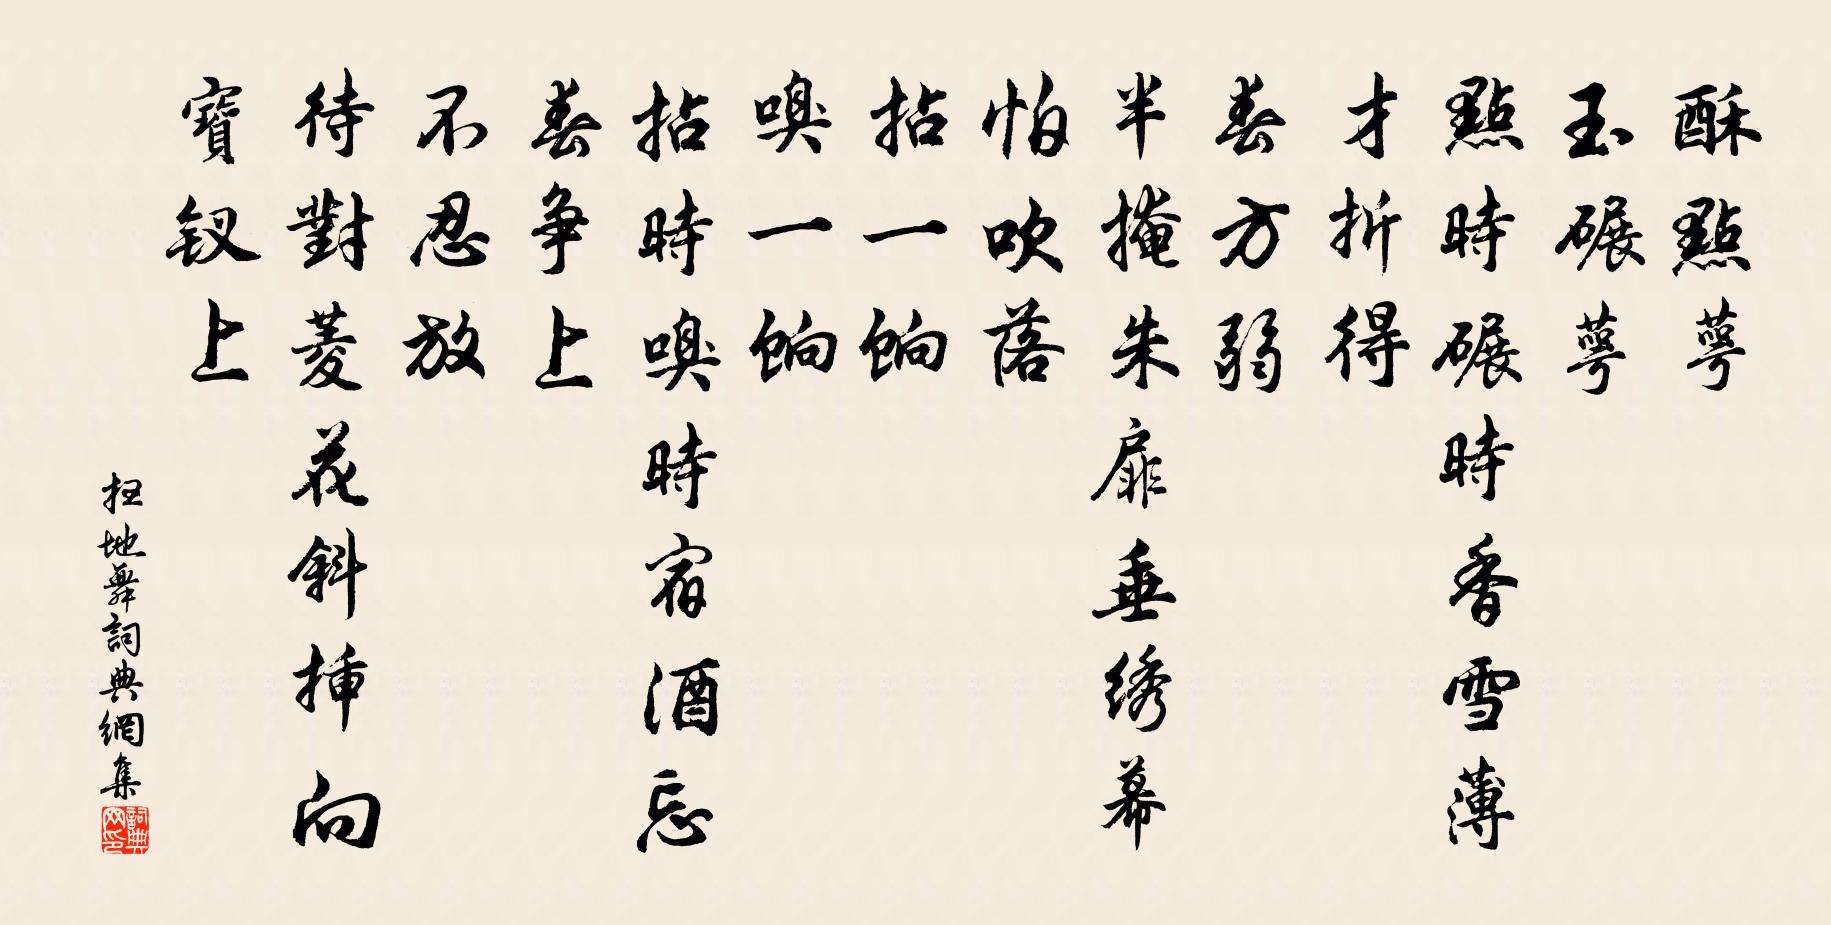 酥點萼
玉碾萼
點時碾時香雪薄
才折得
春方弱
半掩朱扉垂绣幕
怕吹落
拈一餉
嗅一餉
拈時嗅時宿酒忘
春争上
不忍放
待對菱花斜挿向
寳钗上
扫地舞詞典網集
詞典网印